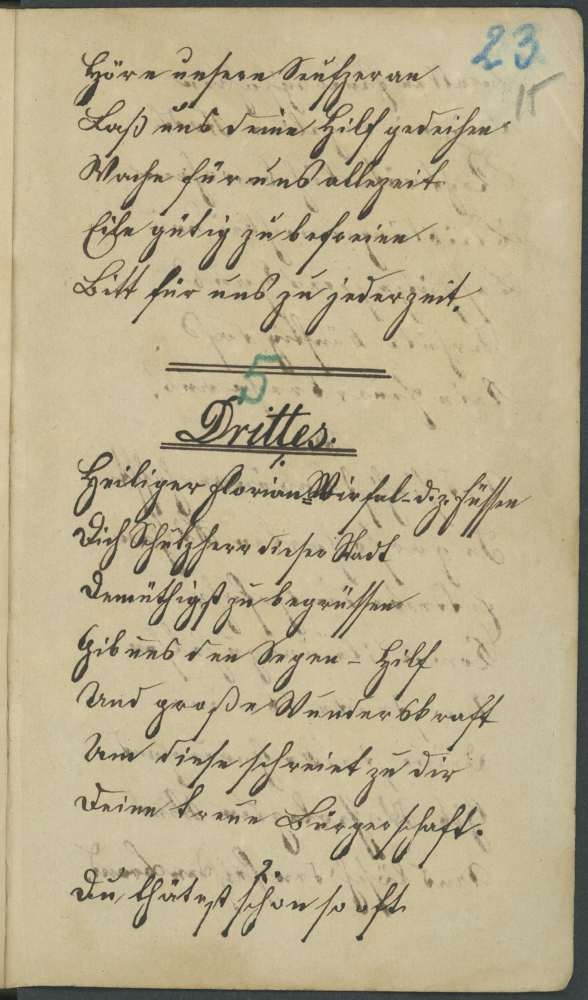 23
15
Höre unsern Seufzer an
Laß uns deine Hilf gedeihen
Wache für uns allezeit
Eile gütig zu befreien
Bitt für uns zu jederzeit.
5
Drittes.
1.
Heiliger Florian Wir fal. d. z. Füssen
Dich Schutzherr dieser Stadt
Demüthigst zu begrüssen
Gib uns den Segen - Hilf
Und große Wunderskraft
Um diese schreiet zu dir
Deine treue Bürgerschaft.
2.
Du thätest schon so oft